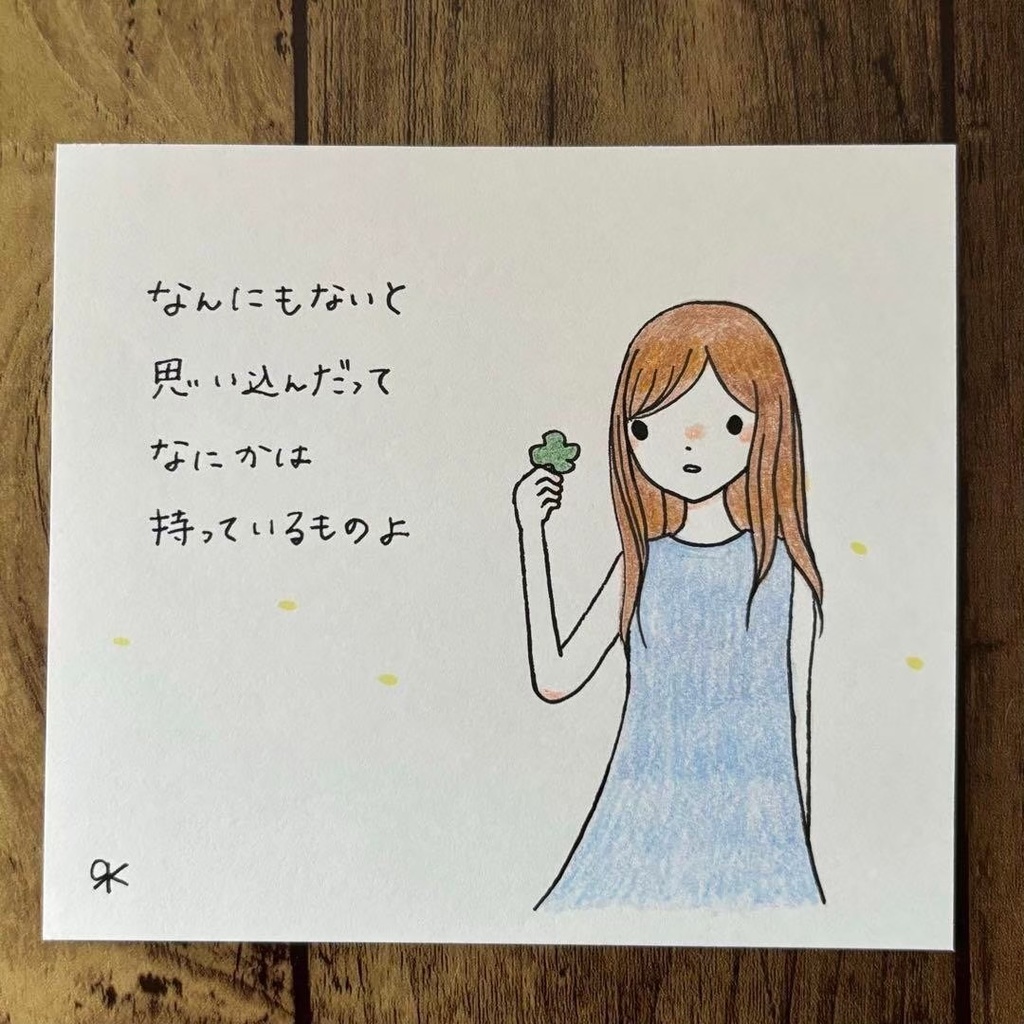 なんにもないと
思い込んだって
なにかは
持っているものよ